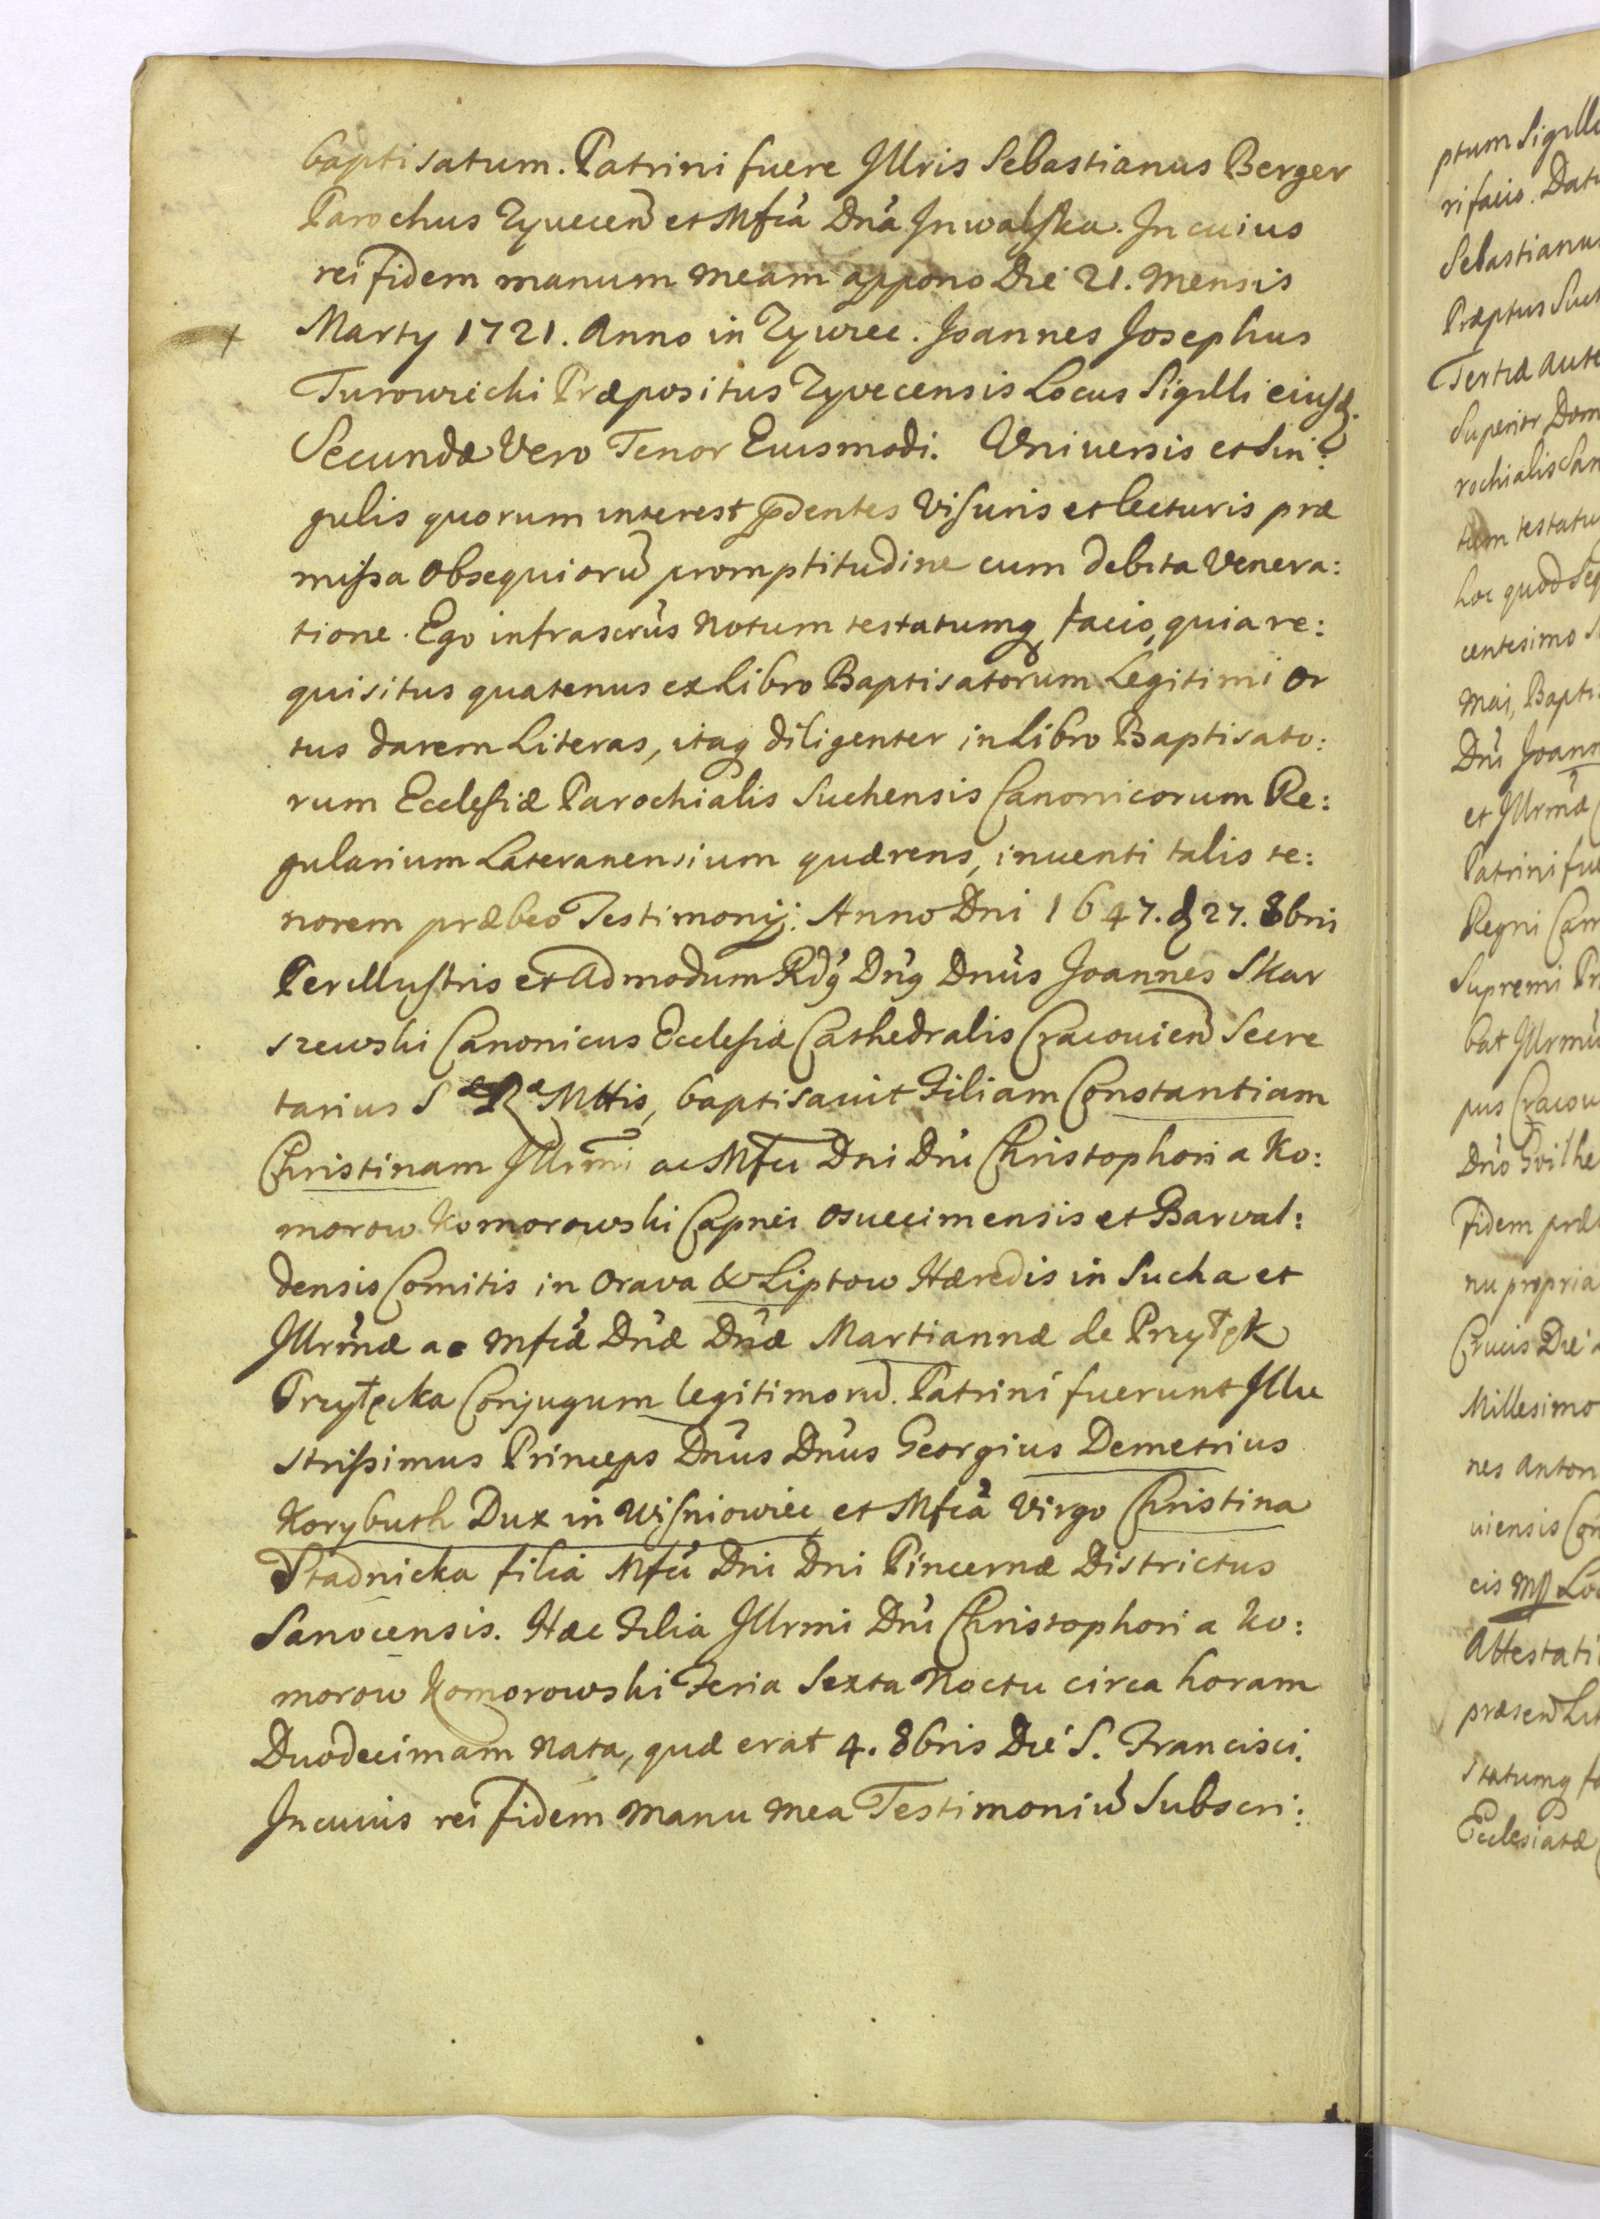 baptisatum. Patrini fuere Jllris Sebastianus Berger
Parochus Zyvecen et Mfca Dna Jnwalska. Jn cuius
rei fidem manum meam appono Die 21. Mensis
Marty 1721. Anno in Zywiec. Joannes Josephus
Turowiechi Præpositus Zyvecensis Locus Sigilli eiusd.
Secundæ Vero Tenor Eiusmodi. Vniuersis et Sin:
gulis quorum interest pdentes Visuris et lecturis præ
missa Obsequioru promptitudine cum debita Venera:
tione. Ego infrascrus notum testatumq facio, quia re:
quisitus quatenus ex Libro Baptisatorum Legitimi Or
tus darem Literas, itaq diligenter in Libro Baptisato:
rum Ecclesiæ Parochialis Suchensis Canonicorum Re:
gularium Lateranensium quærens, inuenti talis te:
norem præbeo Testimonij: Anno Dni 1647. d 27. 8bris
Perillustris et Admodum Rdg Dng Dnus Joannes Skar
szewski Canonicus Ecclesiæ Cathedralis Cracouien Secre
tarius S R Mttis, baptisauit Filiam Constantiam
Christinam Jllrmi ac Mfci Dni Dni Christophori a Ko:
morow Komorowski Capnei Osuecimensis et Barval:
densis Comitis in Orava & Liptow Hæredis in Sucha et
Jllrmæ ac Mfcæ Dnæ Dnæ Martiannæ de Przytęk
Przytęcka Conjugum legitimoru. Patrini fuerunt Jllu
strissimus Princeps Dnus Dnus Georgius Demetrius
Korybuth Dux in Wisniowiec et Mfca Virgo Christina
Stadnicka filia Mfci Dni Dni Pincernæ Districtus
Sanocensis. Hæc Filia Jllrmi Dni Christophori a Ko:
morow Komorowski Feria Sexta Noctu circa horam
Duodecimam Nata, quæ erat 4. 8bris Die S. Francisci.
Jn cuius rei fidem Manu Mea Testimoniu Subscri:
ptum Sigill
ri facio. Dat
Sebastianu
Præptus Such
Tertiæ aute
Superior Dom
rochialis San
tum testatu
hoc quod Seq
centesimo S
Mai, Bapti
Dni Joann
et Jllrmæ
Patrini fue
Regni Cam
Supremi Pr
bat Jllrmu
pus Cracou
Dno Gvilhe
Fidem præ
nu propria
Crucis Die
Millesimo
nes Anton
uiensis Con
cis Mp Loc
Attestati
præsen Lit
statumq fa
Ecclesiatæ